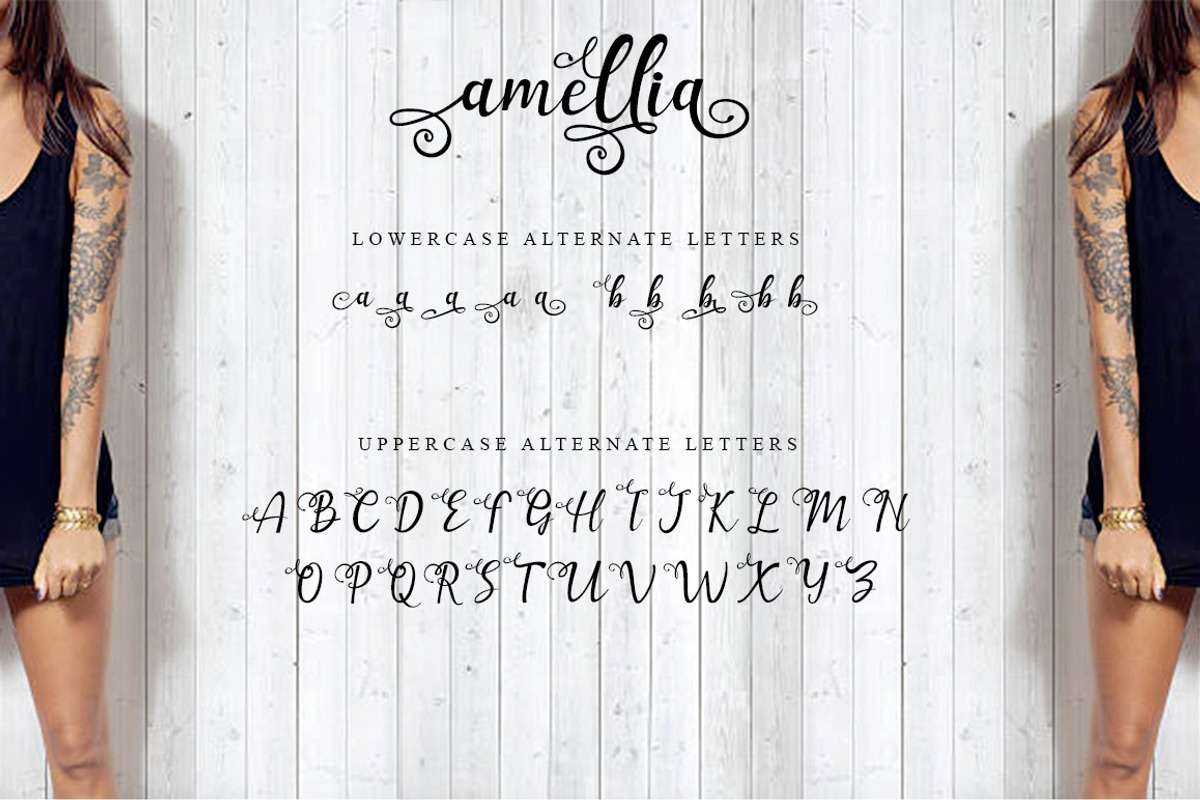 amellia
LOWERCASE ALTERNATE LETTERS
a a a a a b b b b b
UPPERCASE ALTERNATE LETTERS
A B C D E F G H I J K L M N
O P Q R S T U V W X Y Z